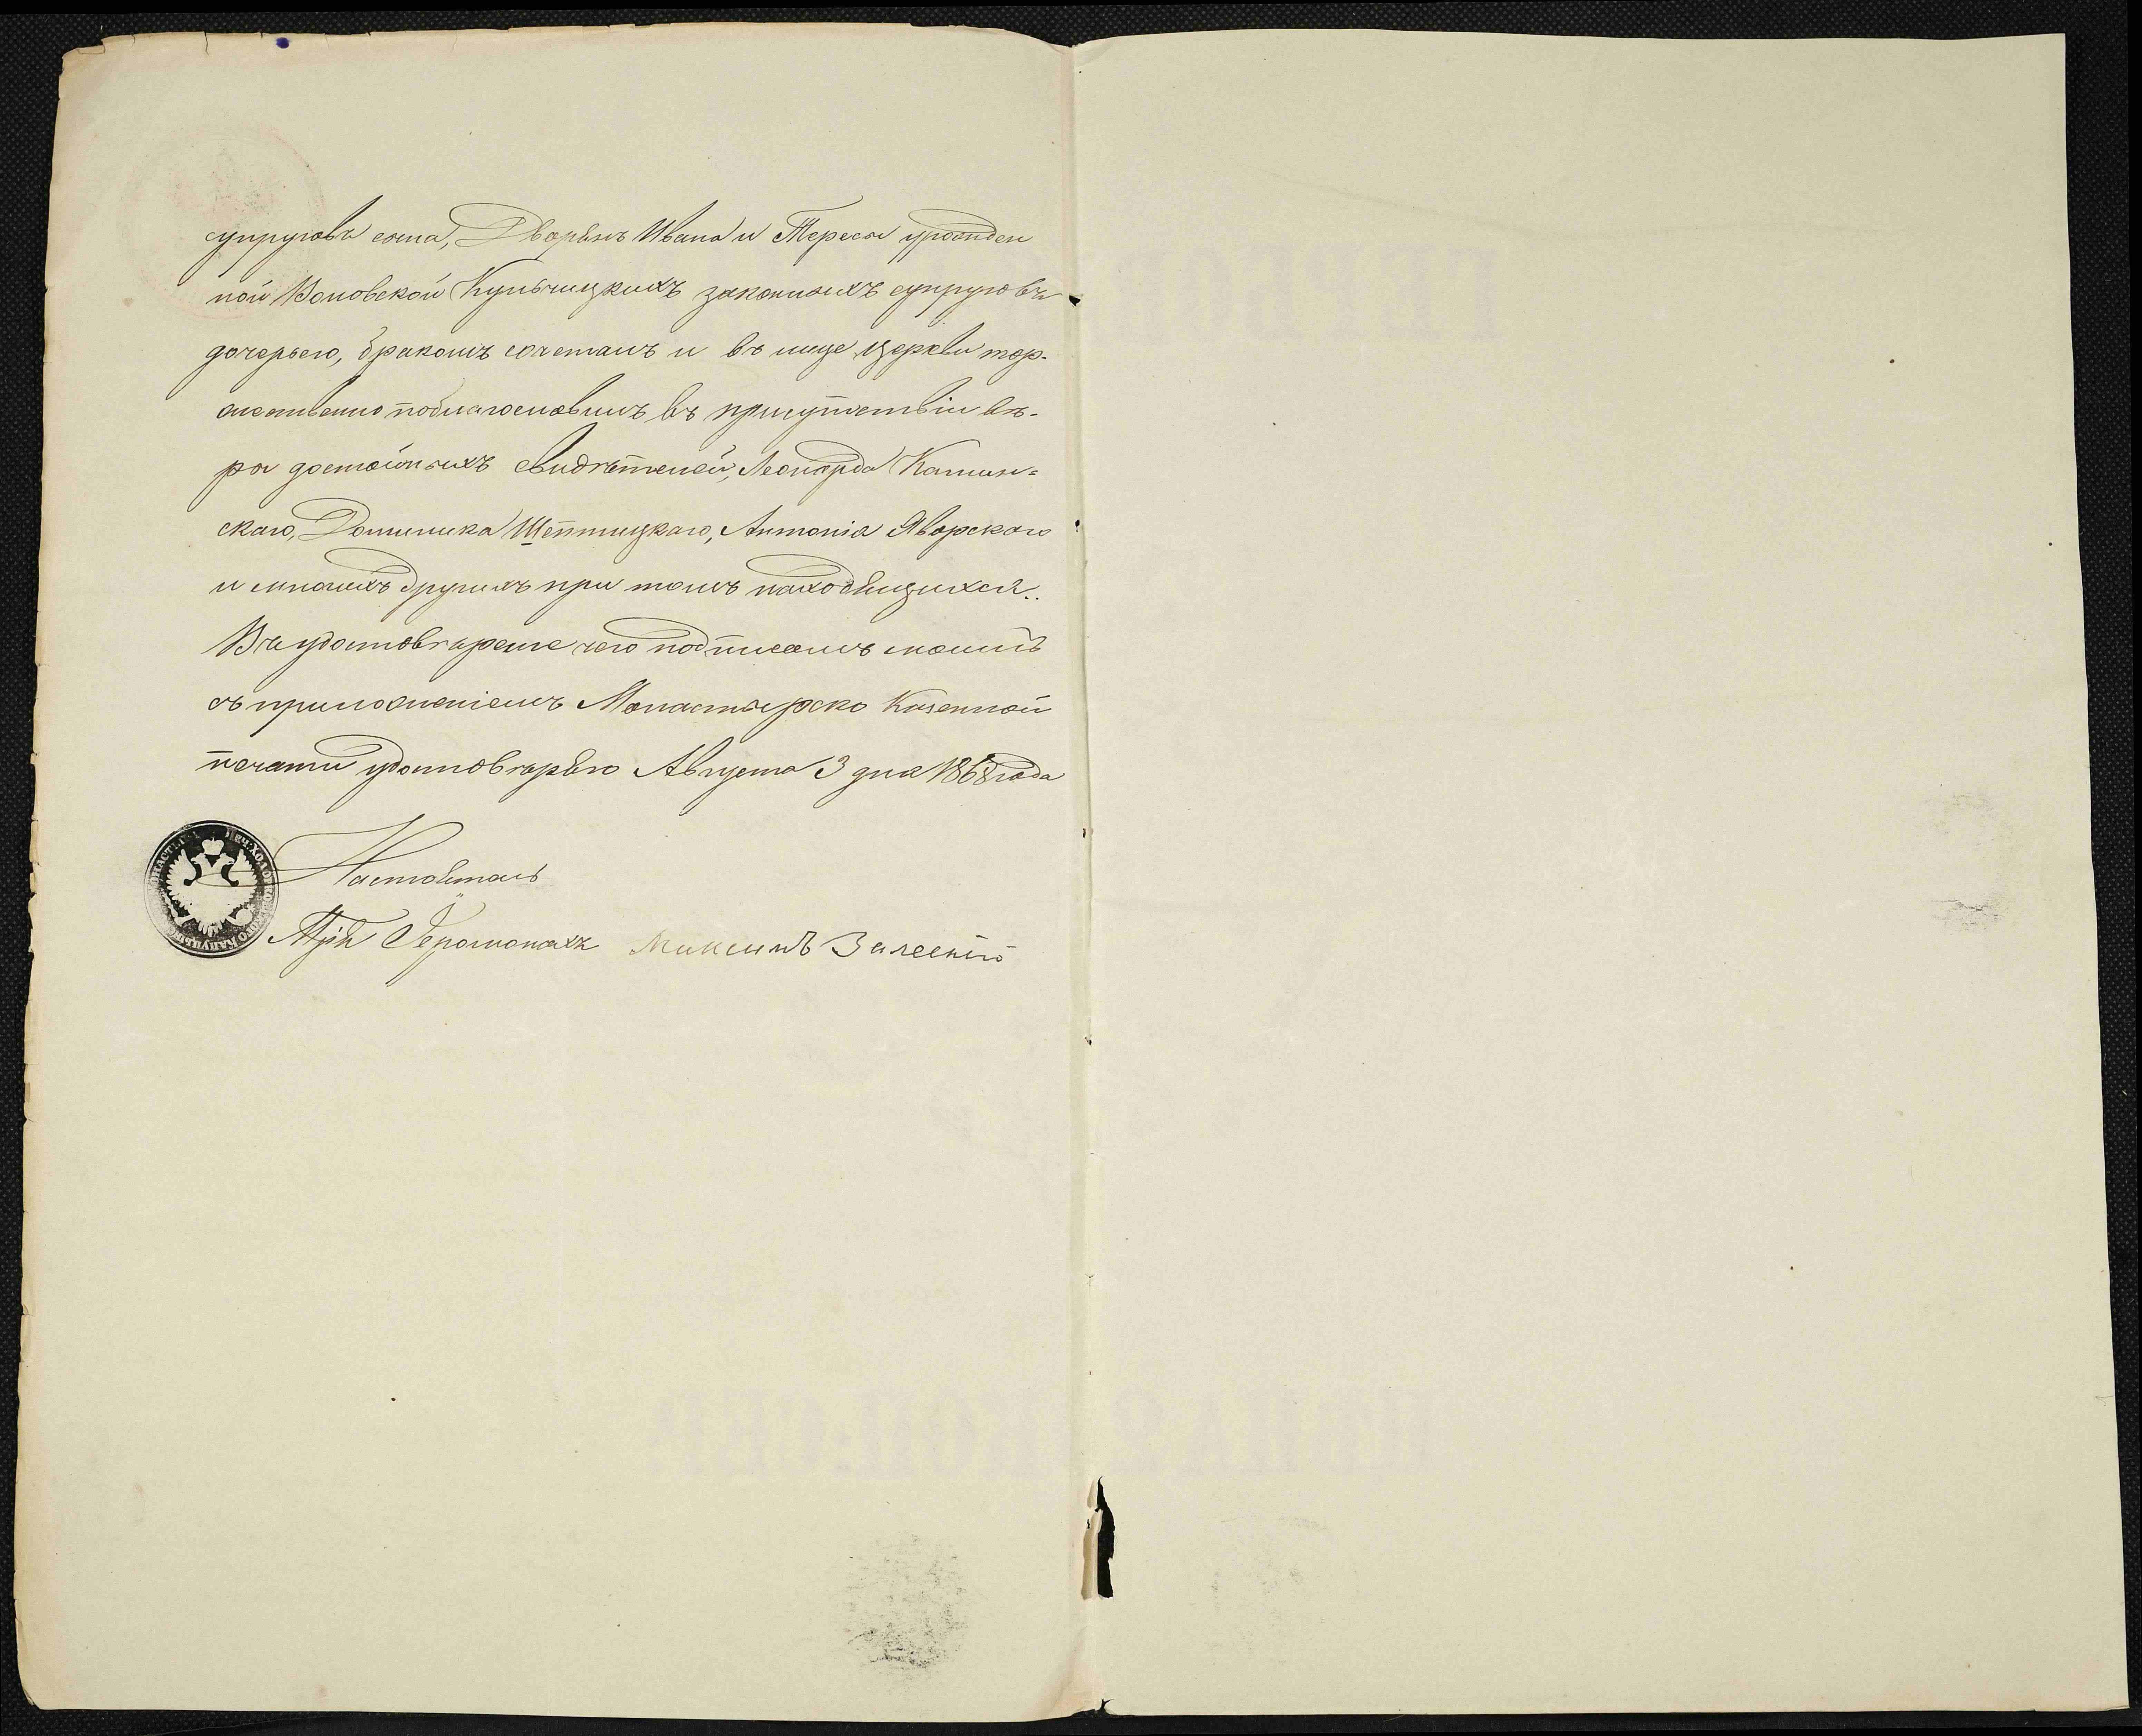 супруговъ сына, Дворянъ Ивана и Тересы урожден
ной Воновской Кульчицкихъ законныхъ супруговъ
дочерью, бракомъ сочеталъ и въ лице Церкви тор-
жественно поблагословилъ въ присутствіи вѣ-
ры достойныхъ свидѣтелей, Леонарда Камин=
скаго, Доминика Шептицкаго, Антонія Яворскаго
и многихъ другихъ при томъ находящихся..
Въ удостовѣреніе чего подписомъ моимъ
съ приложеніемъ Монастырско Казенной
печати удостовѣряю Августа 3 дня 1868 года
Настоятель
Іеромонахъ Максимъ Залескій